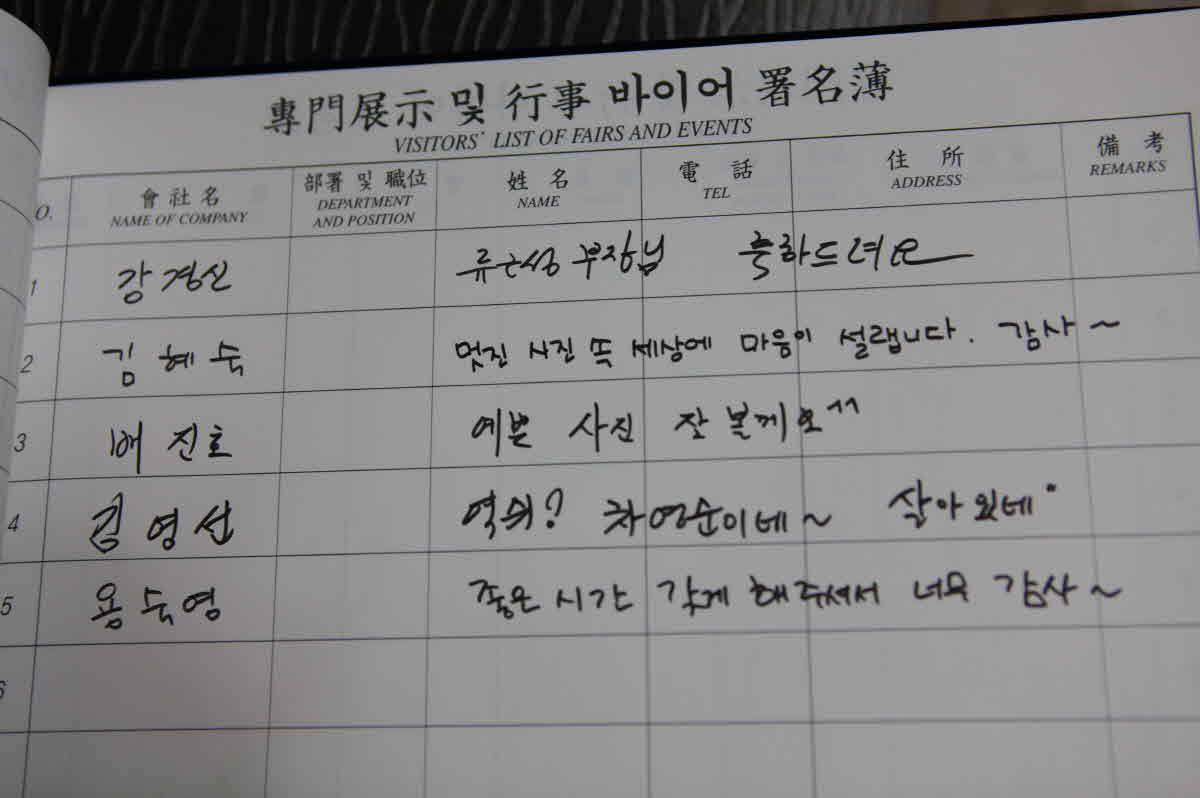 專門展示 및 行事 바이어 署名薄
VISITORS' LIST OF FAIRS AND EVENTS
O. 會社名 部署 및 職位 姓名 電話 住所 備考
NAME OF COMPANY DEPARTMENT AND POSITION NAME TEL ADDRESS REMARKS
1 강경신 류근성 부장님 축하드려요
2 김혜숙 멋진 사진 뜩 세상에 마음이 설랩니다. 감사~
3 배진호 예쁜 사진 잘 볼께요^^
4 김영선 역쉬? 차영순이네~ 살아있네
5 용숙영 좋은 시간 갖게 해주셔서 너무 감사~
6